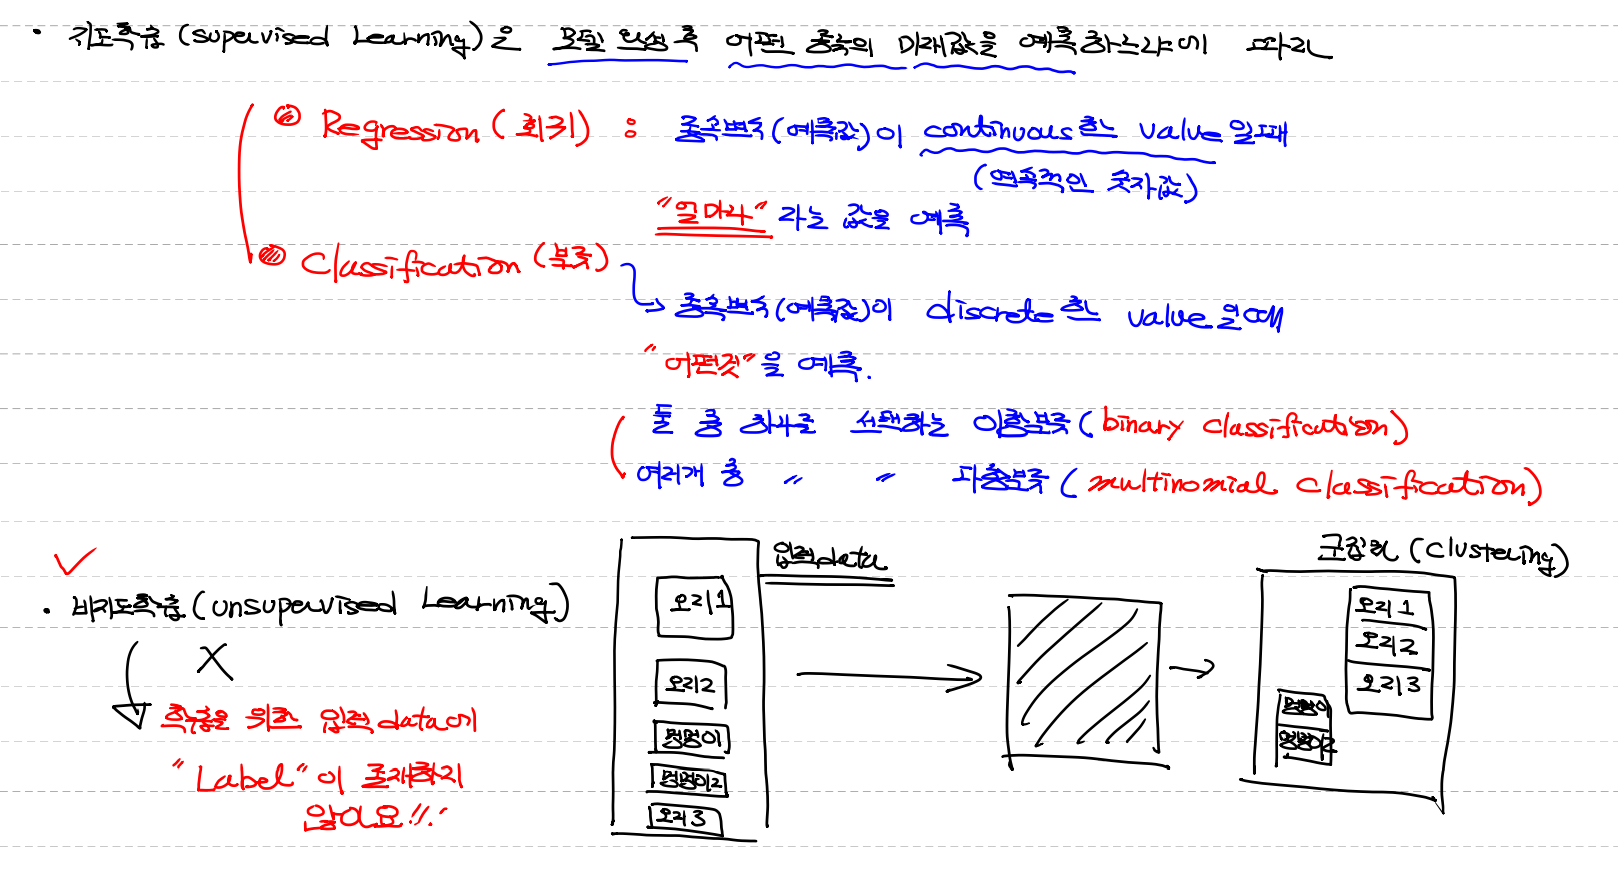 • 지도학습 (supervised Learning)은 모델 완성 후 어떤 종속의 미래값을 예측하느냐에 따라
Regression (회귀) : 종속변수(예측값)이 continuous한 value 일때
(연속적인 숫자값)
"얼마나" 라는 값을 예측
Classification (분류)
→ 종속변수(예측값)이 discrete한 value 일때
"어떤것"을 예측.
둘 중 하나를 선택하는 이항분류 (binary classification)
여러개 중 〃 〃 다중분류 (multinomial classification)
• 비지도학습 (unsupervised Learning)
X
학습을 위한 입력 data에
"Label"이 존재하지
않아요!!.
입력data
오리1
오리2
멍멍이
멍멍이2
오리3
군집화 (clustering)
오리 1
오리2
오리3
멍멍이
멍멍이2